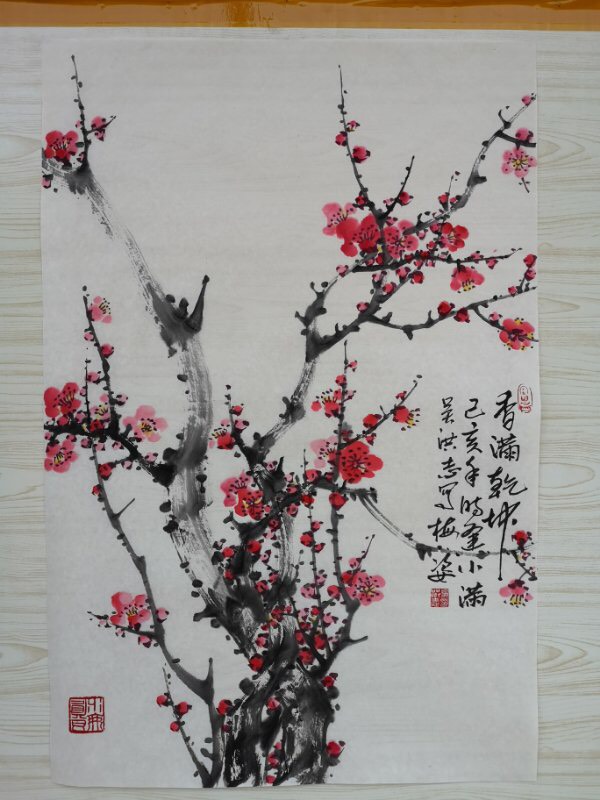 香满乾坤
己亥年时逢小满
吴洪志写梅姿